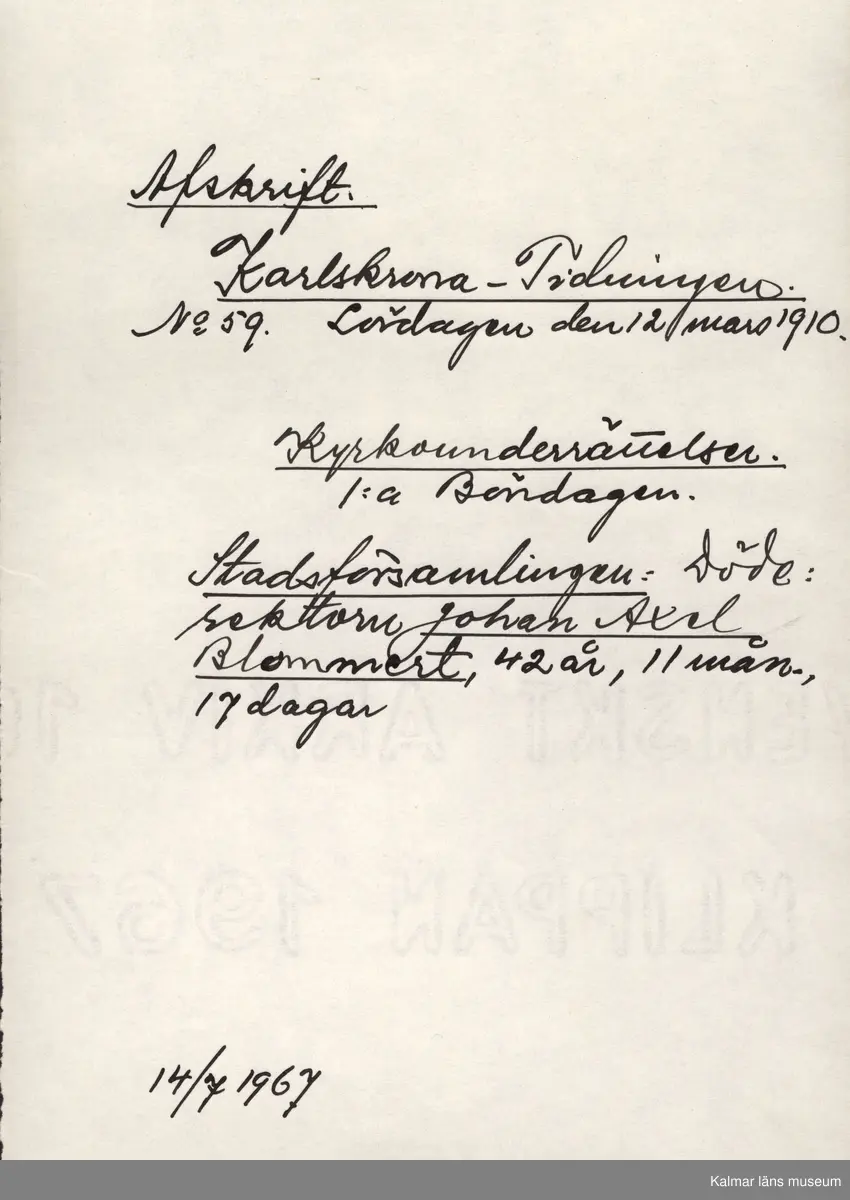 Afskrift.
Karlskrona-Tidningen.
No 59. Lördagen den 12 mars 1910.
Kyrkounderrättelser.
1:a Böndagen.
Stadsförsamlingen: Döde:
rektorn Johan Axel
Blommert, 42 år, 11 mån.,
17 dagar
SVENSKT ARKIV 10
KLIPPAN 1967
14/7 1967
Kalmar läns museum